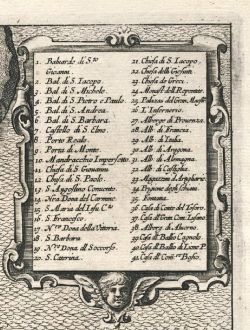 1. Baloardo di S.to
Giovanni
2. Bal di S. Iacopo
3. Bal di S. Michele
4. Bal di S. Pietro e Paulo
5. Bal di S. Andrea
6. Bal di S. Barbara
7. Castello di S. Elmo
8. Porto Reale
9. Porta di Monte
10. Mandracchio Imperfetto
11. Chiesa di S. Giovanni
12. Chiesa di S. Paolo
13. S. Augustino Convento
14. Nra Dona del Carmine
15. S. Maria del Iesu
16. S. Francesco
17. N.ra Dona della Vittoria
18. S. Barbara
19. N.ra Dona del Soccorso
20. S. Caterina
21. Chiesa di S. Iacopo
22. Chiesa delli Giesuiti
23. Chiesa de Greci
24. Monast. dell Repentite
25. Palazzo del Gran Mastr.
26. L'Infermeria
27. Albergo di Provenza
28. Alb. di Francia
29. Alb. di Italia
30. Alb. di Aragona
31. Alb. di Alemagna
32. Alb. di Castiglia
33. Magazzini d'Artiglieria
34. Prigione degli Schiavi
35. Fontana
36. Casa di Conte del Tesoro
37. Casa di
38. Albergo di Alverno
39. Casa di Ballio Cagnolo
40. Casa di Ballio di Lione P.
41. Casa di Com. Bosio